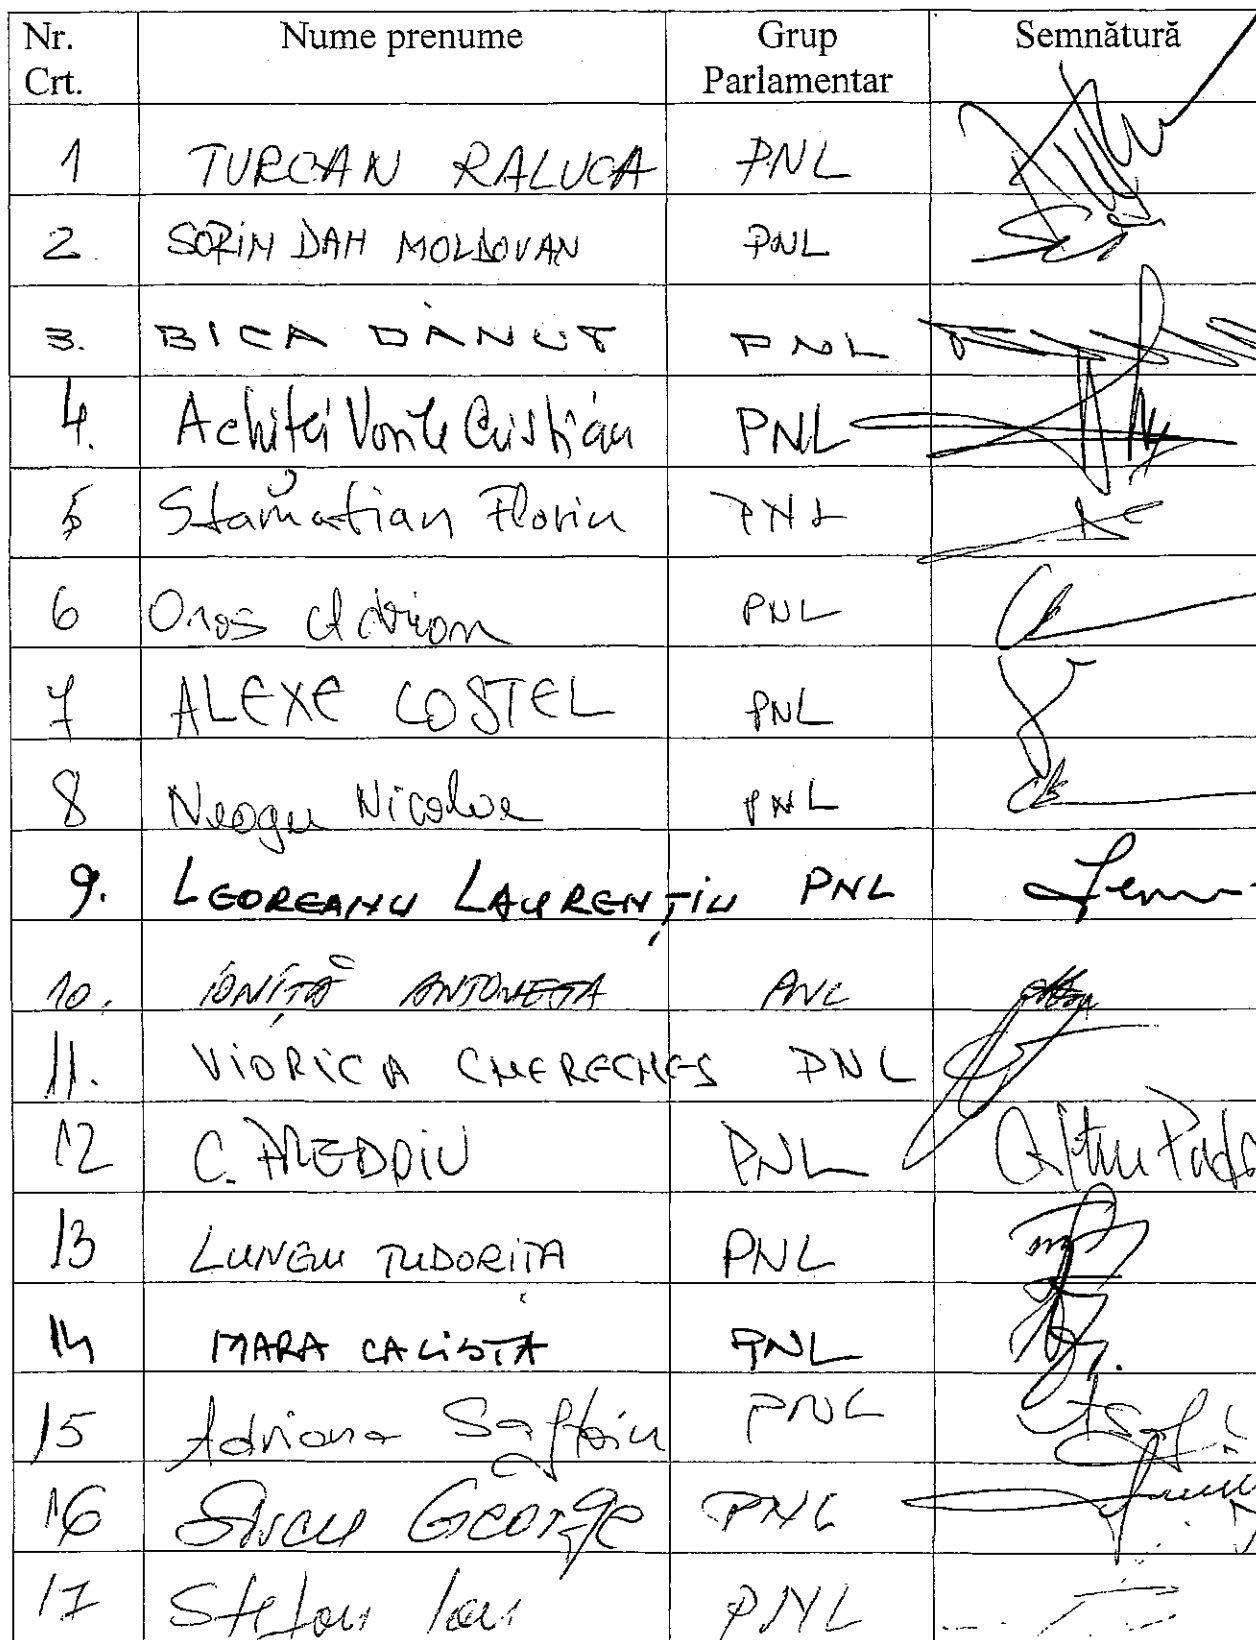 Nr. Crt. Nume prenume Grup Parlamentar Semnătură
1 TURCAN RALUCA PNL
2. SORIN DAN MOLDOVAN PNL
3. BICA DĂNUT PNL
4. Achiței Vasile Cristian PNL
5 Stamatian Florin PNL
6 Oros Adrian PNL
7 ALEXE COSTEL PNL
8 Neagu Nicolae PNL
9. LEOREANU LAURENȚIU PNL
10. IONIȚĂ ANTONETA PNL
11. VIORICA CHERECHES PNL
12 C. PREDOIU PNL
13 LUNGU TUDORIȚA PNL
14 MARA CALISTA PNL
15 Adriana Săftoiu PNL
16 Șișcu George PNL
17 Stefan Ion PNL